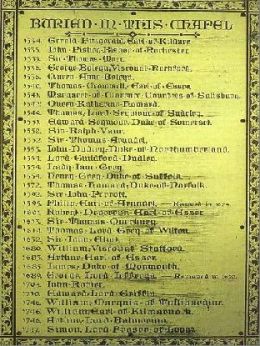 BURIED IN THIS CHAPEL
1534. Gerald Fitzgerald, Earl of Kildare.
1535. John Fisher, Bishop of Rochester.
1535. Sir Thomas More.
1536. George Boleyn, Viscount Rochford.
1536. Queen Anne Boleyn.
1540. Thomas Cromwell, Earl of Essex.
1541. Margaret of Clarence, Countess of Salisbury.
1542. Queen Katharine Howard.
1549. Thomas, Lord Seymour of Sudeley.
1552. Edward Seymour, Duke of Somerset.
1552. Sir Ralph Vane.
1552. Sir Thomas Arundel.
1553. John Dudley, Duke of Northumberland.
1554. Lord Guildford Dudley.
1554. Lady Jane Grey.
1554. Henry Grey, Duke of Suffolk.
1572. Thomas Howard, Duke of Norfolk.
1592. Sir John Perrott.
1595. Philip, Earl of Arundel.
1601. Robert Devereux, Earl of Essex.
1613. Sir Thomas Overbury.
Thomas, Lord Grey of Wilton.
1632. Sir John Eliot.
1680. William, Viscount Stafford.
1683. Arthur, Earl of Essex.
1685. James, Duke of Monmouth.
1689. George, Lord Jeffreys.
John Rotier.
Edward, Lord Griffin.
William, Marquis of Tullibardine.
1746. William, Earl of Kilmarnock.
1746. Arthur, Lord Balmerino.
1747. Simon, Lord Fraser of Lovat.